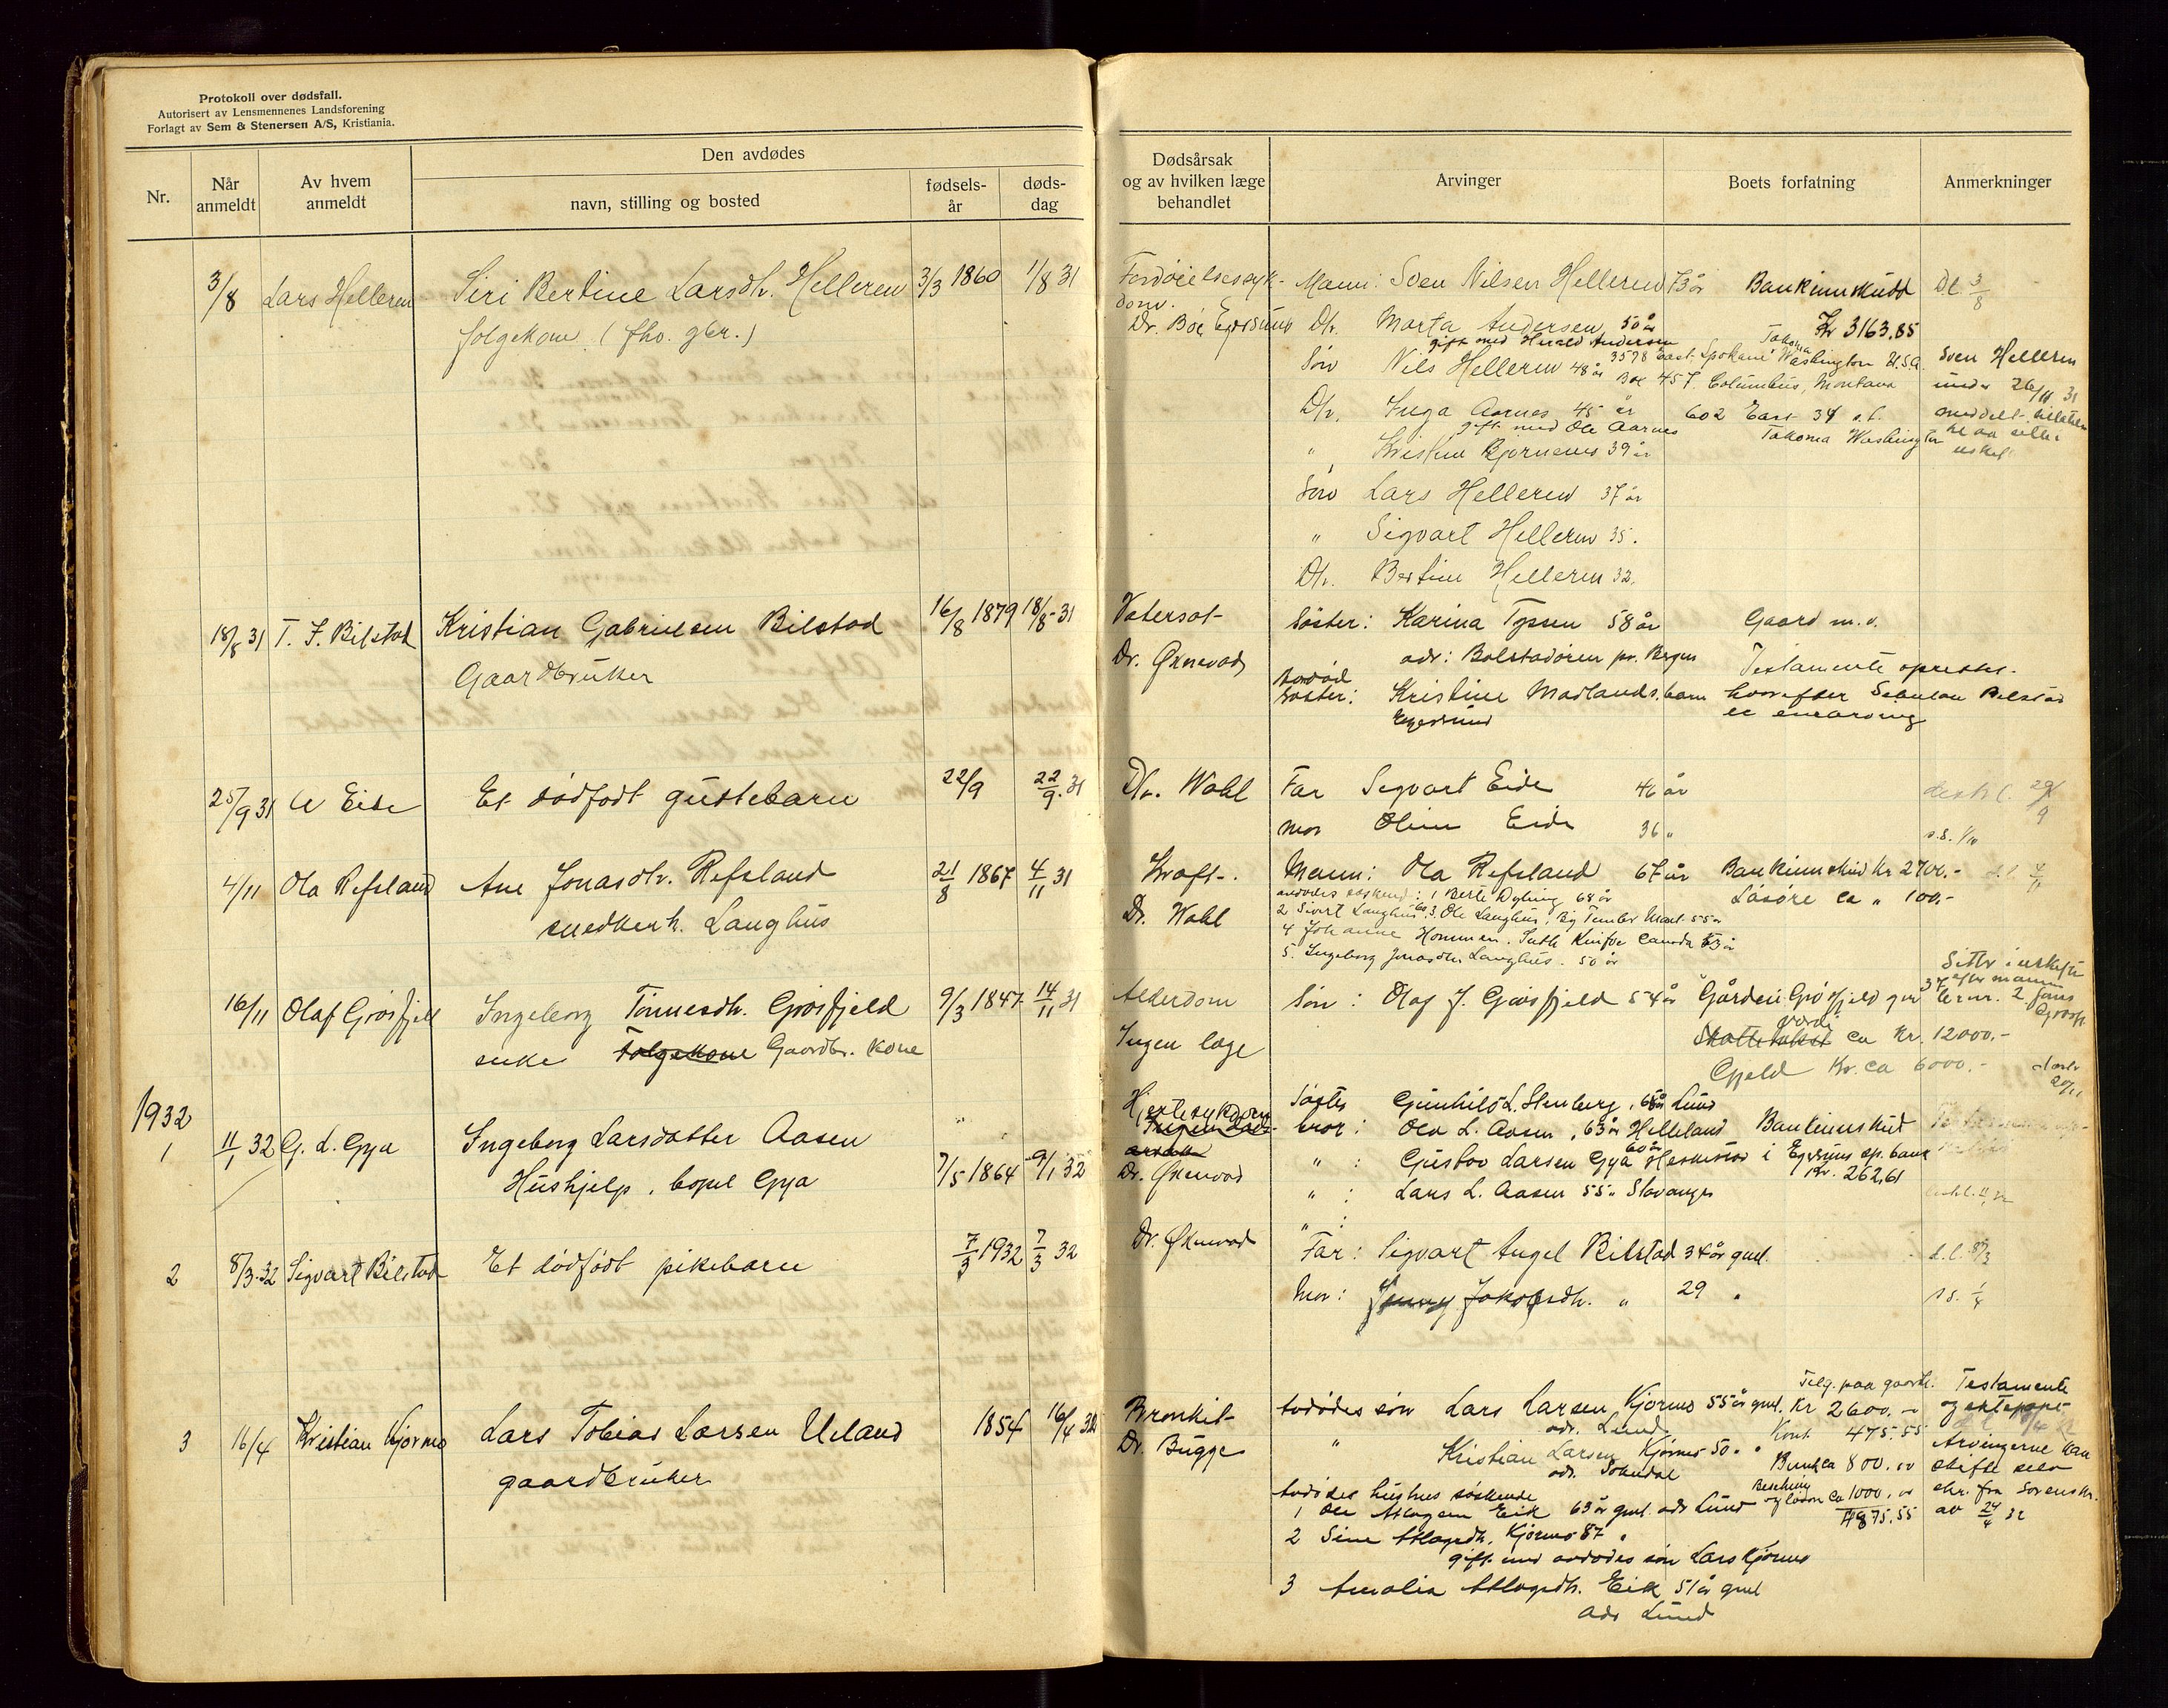 Protokoll over dødsfall.
Autorisert av Lensmennenes Landsforening
Forlagt av Sem & Stenersen A/S, Kristiania.
Nr.
Når anmeldt
Av hvem anmeldt
Den avdødes
navn, stilling og bosted
fødsels-år
døds-dag
Dødsårsak og av hvilken læge behandlet
Arvinger
Boets forfatning
Anmerkninger
3/8 Lars Helleren Siri Bertine Larsdtr. Helleren 3/3 1860 1/8 31
folgekone (fho. gbr.)
Fordøielsessyk-
dom.
Dr. Böe Egersund
Mann: Sven Nilsen Helleren 73 år
Dtr. Marta Andersen 50 år
gift med Herald Andersen
3578 East Spokane Takoma Washington U.S.A.
Søn Nils Helleren 48 år Box 457 Columbus, Montana
Dtr. Inga Aarnes 45 år 602 East 34 st.
gift med Ole Aarnes Takoma Washington
" Kristine Bjørnenes 39 år
Søn Lars Helleren 37 år
" Sigvart Helleren 35.
Dtr. Bertine Helleren 32.
Bankinnskudd
Kr 3163,85
D.l. 3/8
Sven Helleren
under 26/11 31
18/8 31 T. J. Bilstad Kristian Gabrielsen Bilstad 16/8 1879 18/8 31
Gaardbruker
Vatersot
Dr. Øknevad
Søster: Karina Tyssen 58 år
adr: Bolstadøren pr. Bergen
Avdød
søster: Kristine Madlands barn
Egersund
Gaard m.v.
Testamente oprettet.
hvorefter Sebulon Bilstad
er enearving
25/9 31 Eide Et dødfødt guttebarn 22/9 22/9. 31
Dr. Wahl
Far Sigvart Eide 46 år
mor Oline Eide 36 "
s.s. 1/10
4/11 Ola Refsland Ane Jonasdtr. Refsland 21/8 1867 4/11 31
snedkerh. Langhus
Kræft.
Dr. Wahl
Mann: Ola Refsland 67 år
avdødes søskend: 1 Berte Dybing 68 år
2 Sivert Langhus 60 3. Ole Langhus, Big Timber Mont. 55 år
4 Johanne Hommen. Canada 53 år
5. Ingeborg Jonasdtr. Langhus. 50 år
Bankinnskud kr 2700.-
Løsøre ca " 100.-
16/11 Olaf Grøsfjell Ingeborg Tønnesdtr. Grøsfjeld 9/3 1847 14/11 31
enke Folgekone Gaardbr. kone
Alderdom
Ingen læge
Søn: Olaf J. Grøsfjeld 54 år
Gården Grøsfjeld
verdi
Skattetakst ca kr. 12000.-
Gjeld kr. ca 6000.-
Sitter i uskiftet
efter mannen
1932
1 11/1 32 G. L. Gya Ingeborg Larsdatter Aasen 7/5 1864 9/1 32
Hushjelp, bopel Gya
Hjertesykdom
Ingen døds-
årsak
Dr. Øknevad
Søster Gunhild L. Stenberg, 68 år Lund
bror: Ola L. Aasen, 63 år Helleland
" : Gustav Larsen Gya 60 år Heskestad
" : Lars L. Aasen 55 " Stavanger
" :
Bankinnskud
i Egersunds sp. bank
kr. 262,61
2 8/3.32 Sigvart Bilstad Et dødfødt pikebarn 7/3 1932 7/3 32
Dr. Øknevad
Far: Sigvart Angel Bilstad 34 år gml.
Mor: Jenny Jakobsdtr. " 29 "
d.l. 8/3
s.s. 1/4
3 16/4 Kristian Kjørmo Lars Tobias Larsen Ueland 1854 16/4 32
gaardbruker
Bronkit
Dr. Bugge
Avdødes søn Lars Larsen Kjørmo 55 år gml.
adr. Lund
" Kristian Larsen Kjørmo 50 " "
adr. Sokndal
Avdødes hustrus søskende
1 Ole Atlagsen Eik 63 år gml. adr Lund
2 Sine Atlagsdtr. Kjørmo 57 "
gift med avdødes søn Lars Kjørmo
3 Amalia Atlagsdtr. Eik 51 år gml
adr Lund
Tilg. paa gaardbr.
kr 2600.-
Kont. 475.55
800.00
Besetning
og løsøre ca 1000.00
4875.55
Testamente
og ektepagt
Arvingerne kan
skifte selv
skr. fra Sorenskr.
av 24/4 32